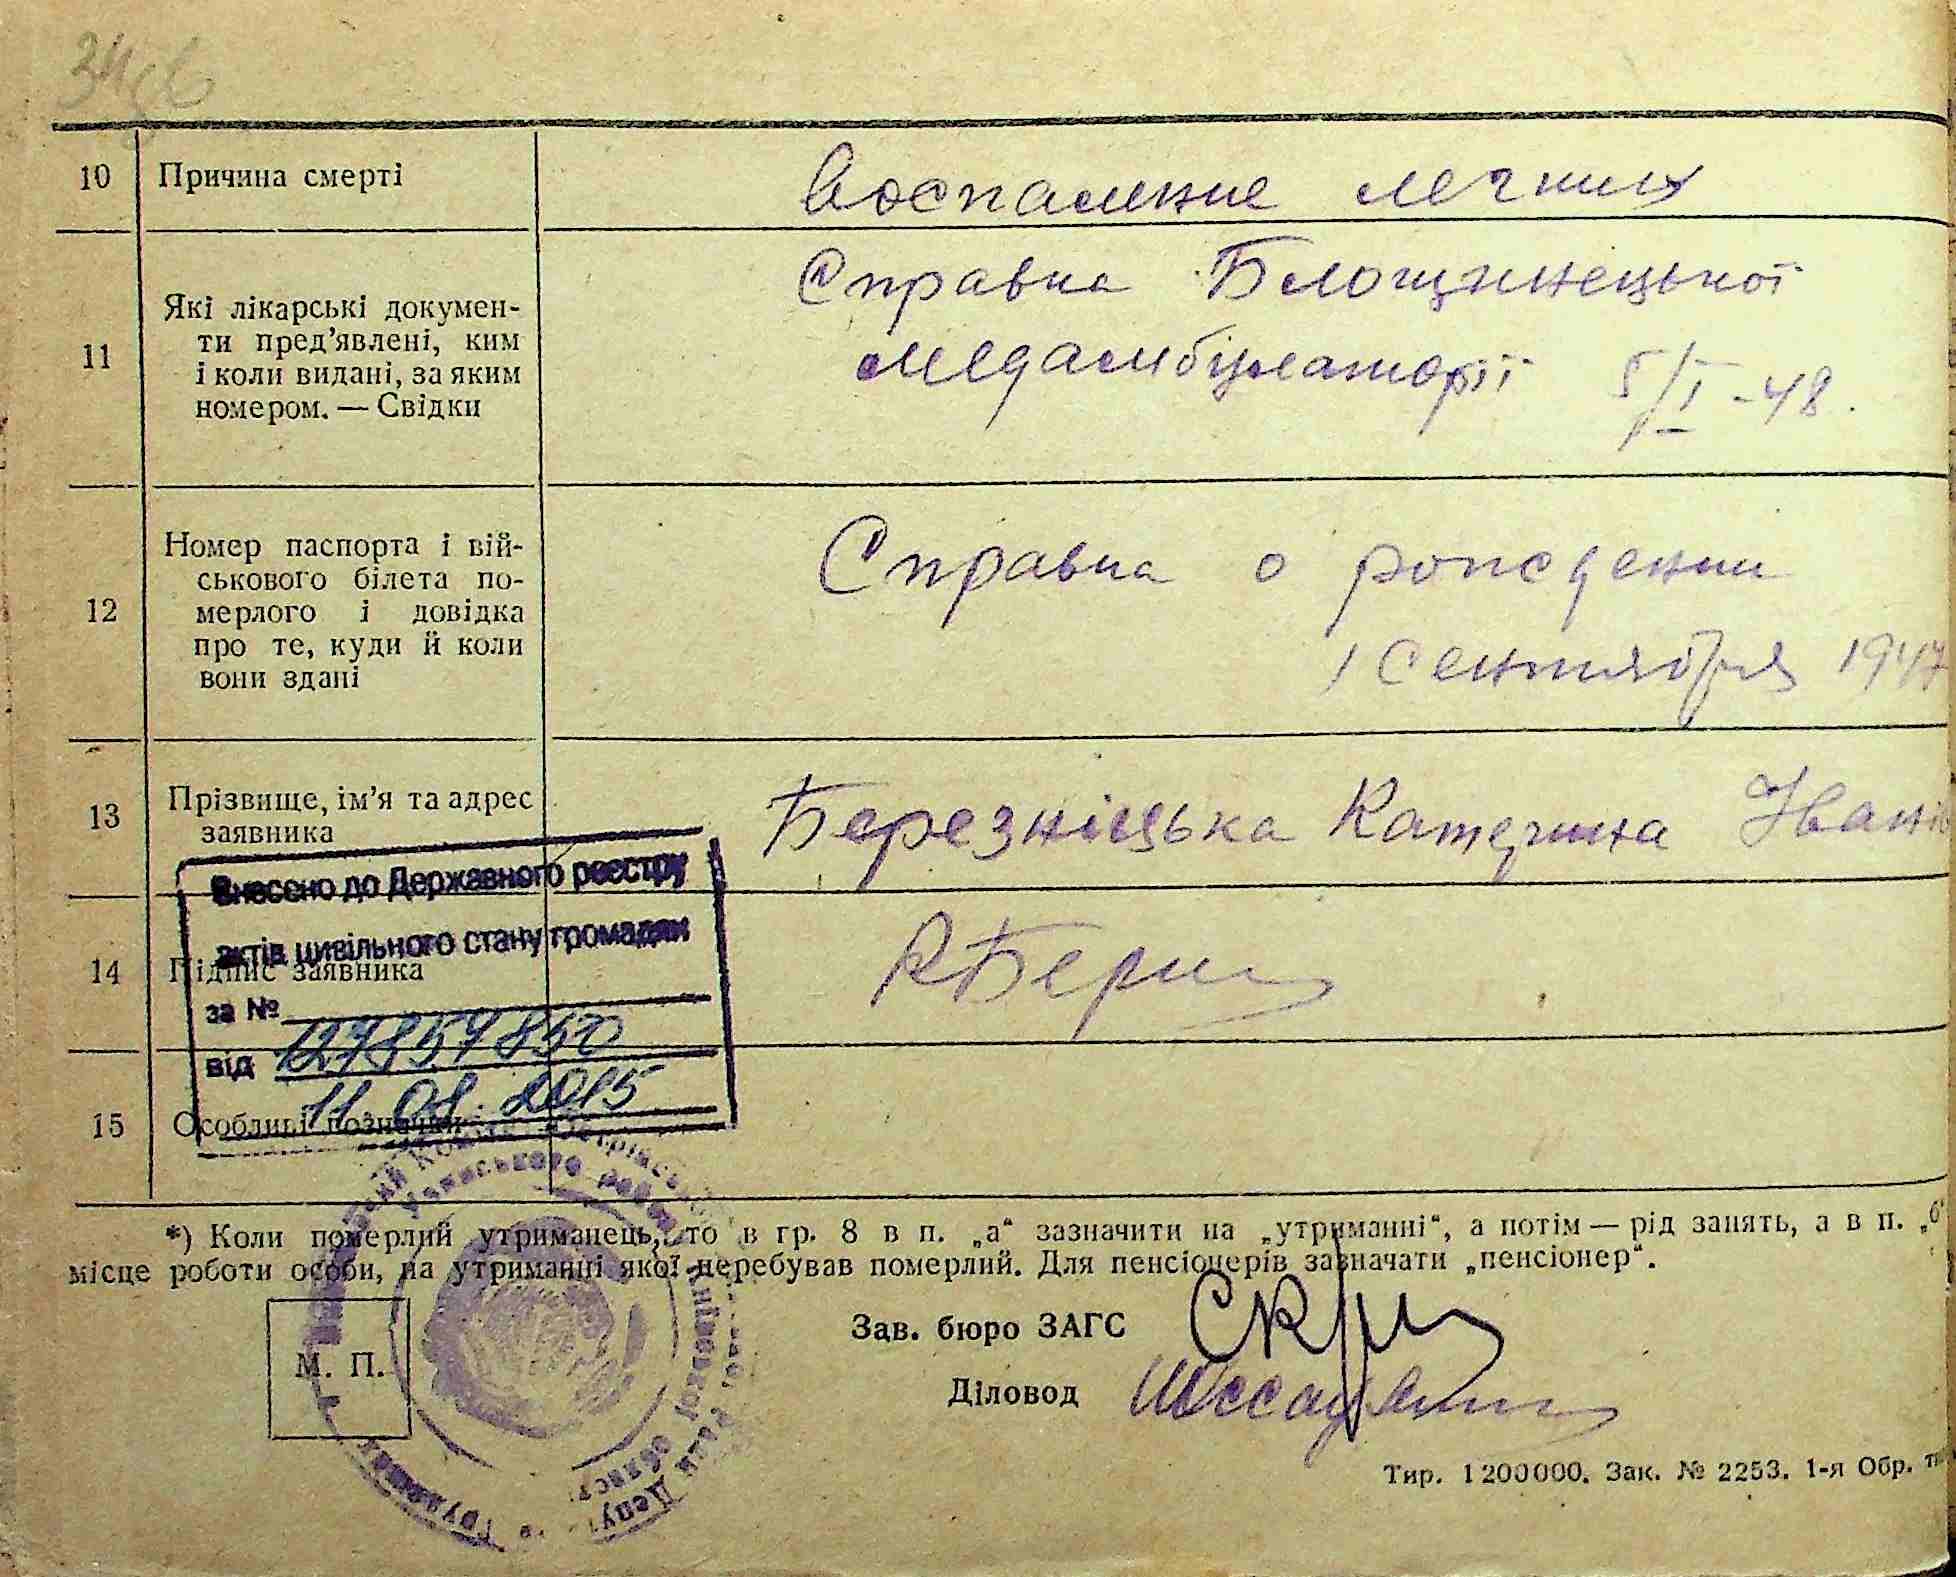 10 Причина смерті Воспаление легких
11 Які лікарські докумен-
ти пред'явлені, ким
і коли видані, за яким
номером. — Свідки
Справка Блощинецької
медамбулаторії 5/I - 48.
12 Номер паспорта і вій-
ськового білета по-
мерлого і довідка
про те, куди й коли
вони здані
Справка о рождении
1 Сентября 1947
13 Прізвище, ім'я та адрес
заявника
Березніцька Катерина Івані
14 Підпис заявника
15 Особливі позначки
Внесено до Державного реєстру
актів цивільного стану громадян
за №
від 127857850
11.01.2015
*) Коли померлий утриманець, то в гр. 8 в п. „а“ зазначити на „утриманні“, а потім — рід занять, а в п. „б“
місце роботи особи, на утриманні якої перебував померлий. Для пенсіонерів зазначати „пенсіонер“.
М. П.
Зав. бюро ЗАГС
Діловод
Тир. 1200000. Зак. № 2253. 1-я Обр.